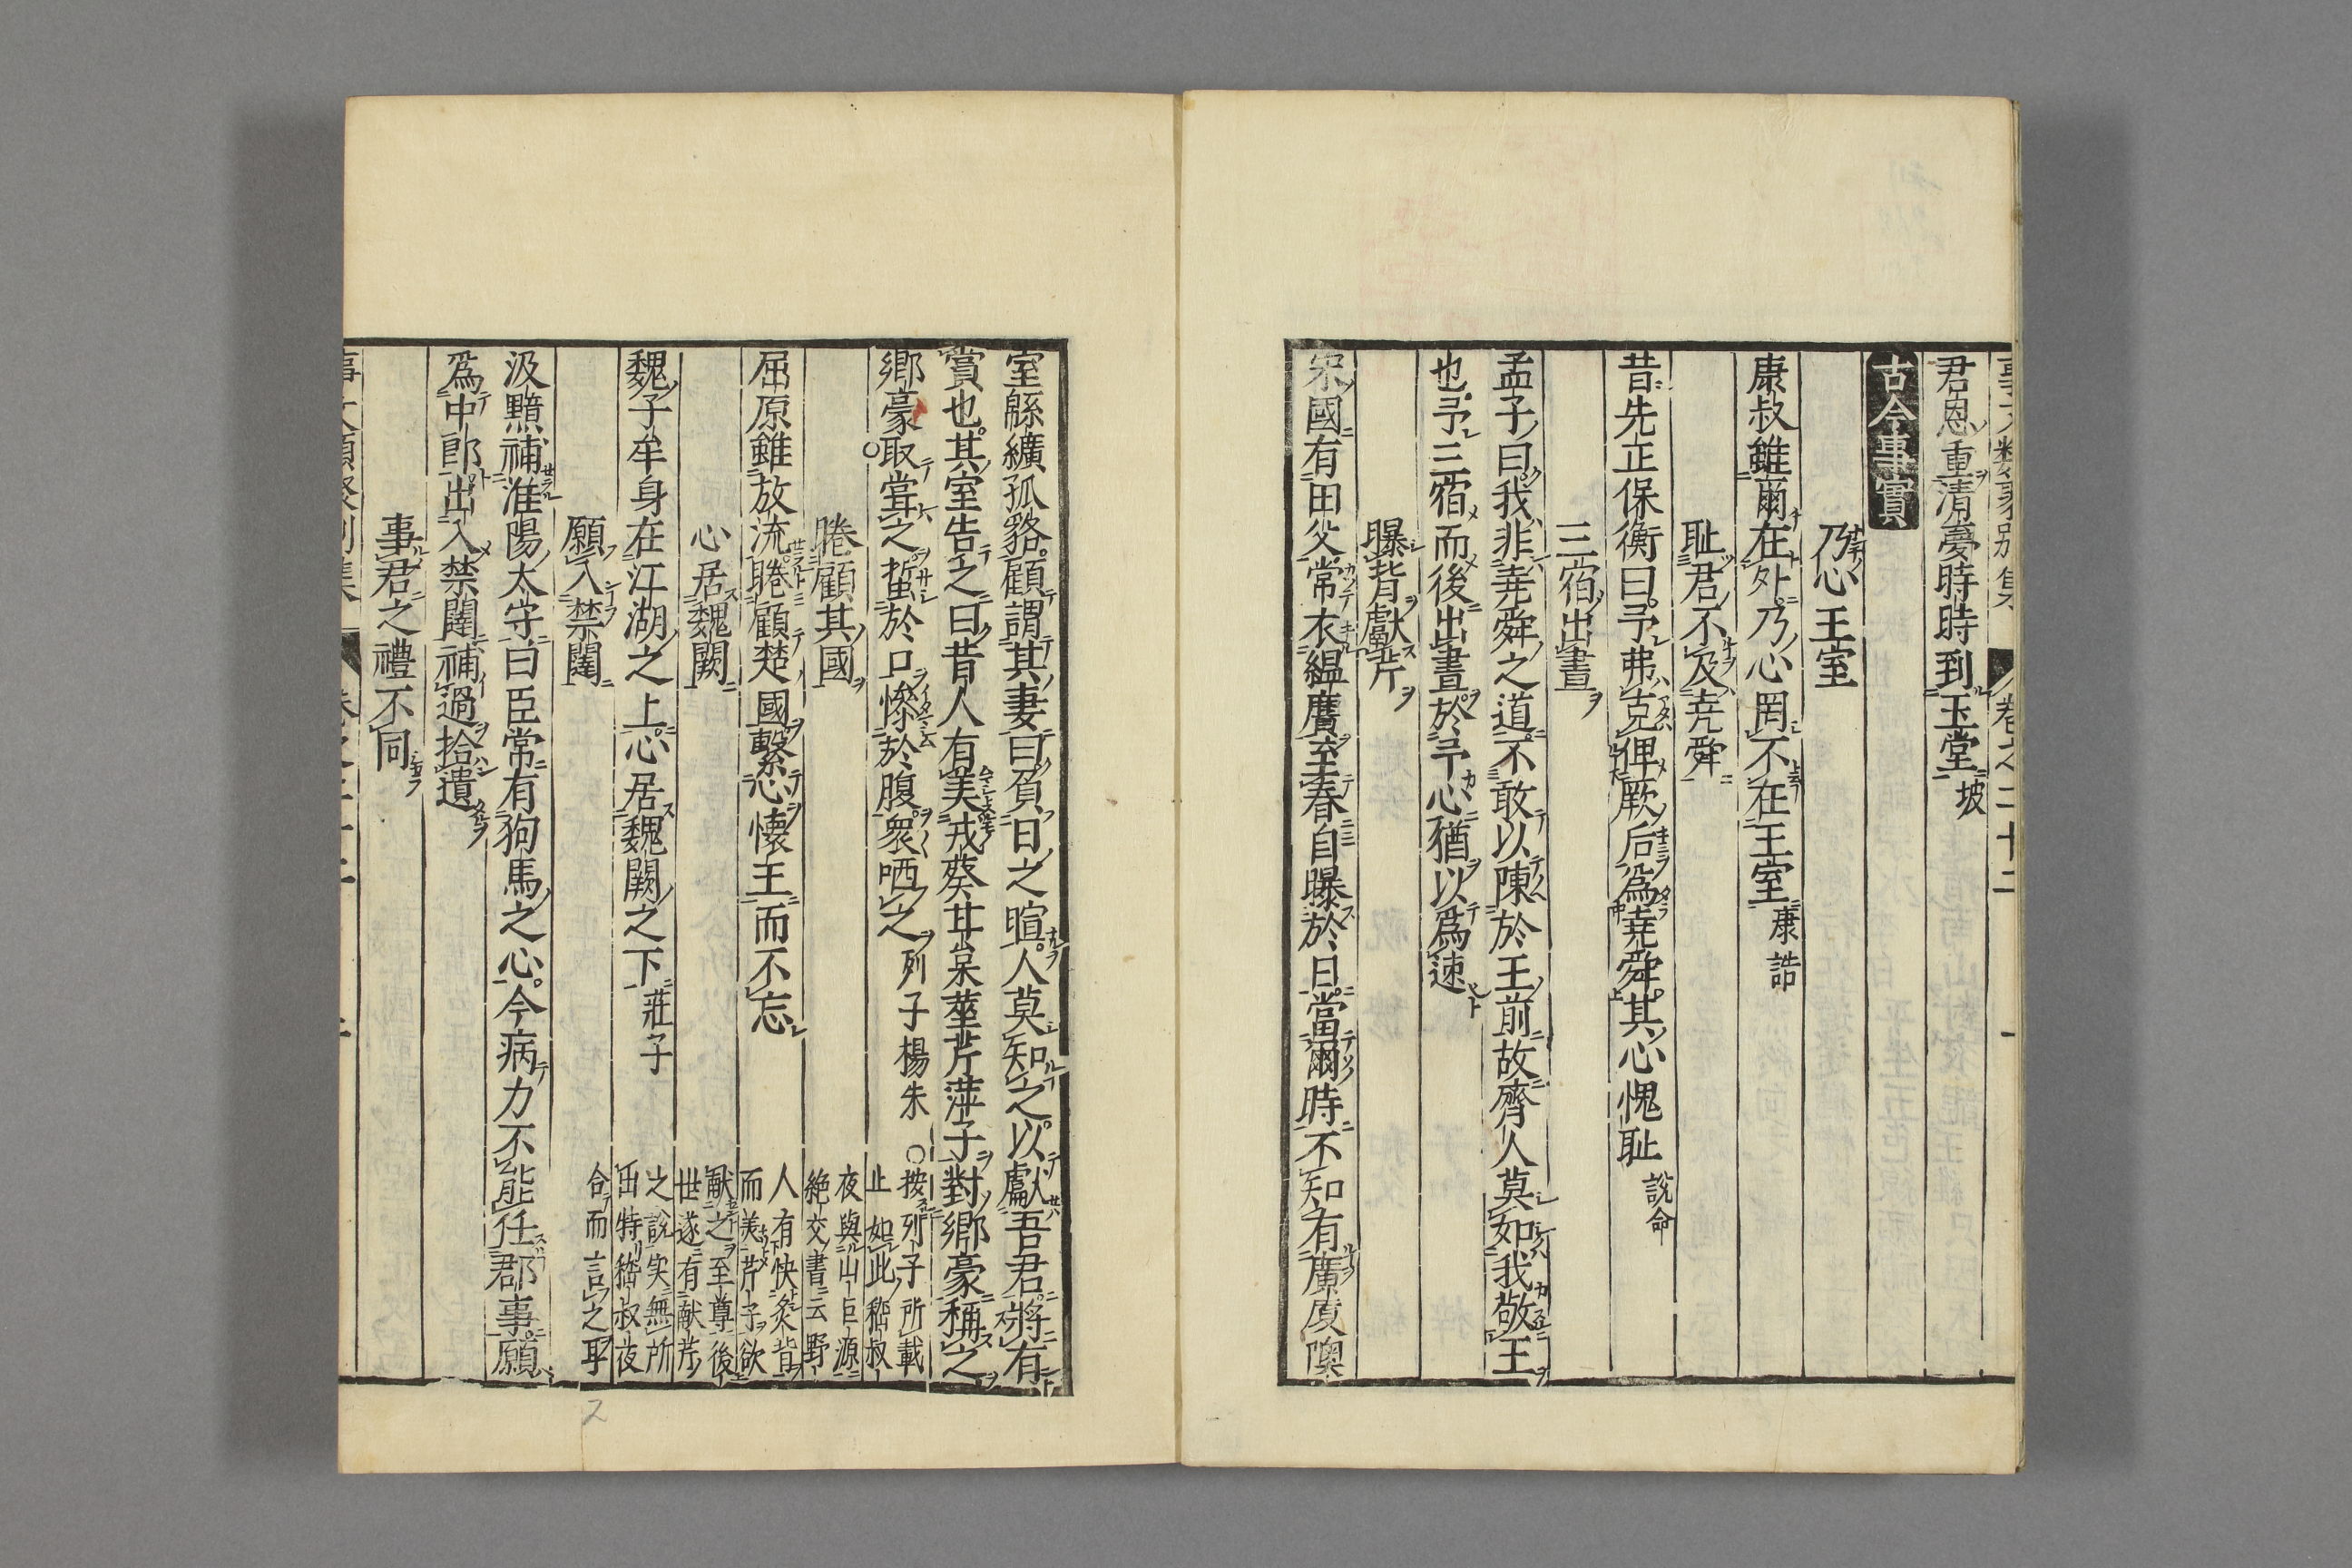 事文類聚別集　卷之二十二
君恩重清夢時時到玉堂坡
古今事實
乃心王室
康叔雖爾在外乃心罔不在王室康誥
耻君不及堯舜
昔先正保衡曰予弗克俾厥后爲堯舜其心愧耻說命
三宿出晝
孟子曰我非堯舜之道不敢以陳於王前故齊人莫如我敬王
也予三宿而後出晝於予心猶以爲速
曝背獻芹
宋國有田父常衣緼黂至春自曝於日當爾時不知有廣厦隩
室緜纊孤貉顧謂其妻曰負日之暄人莫知之以獻吾君將有
賞也其室告之曰昔人有美戎葵甘枲莖芹萍子對鄉豪稱之
鄉豪取甞之蜇於口慘於腹衆哂之列子楊朱○按列子所載
止如此嵇叔
夜與山巨源
絶交書云野
人有快炙背
而美芹子欲
獻之至尊後
世遂有献芹
之說失無所
出特嵇叔夜
合而言之耳
睠顧其國
屈原雖放流睠顧楚國繫心懷王而不忘
心居魏闕
魏子牟身在江湖之上心居魏闕之下莊子
願入禁闥
汲黯補淮陽太守曰臣常有狗馬之心今病力不能任郡事願
爲中郎出入禁闥補過拾遺
事君之禮不同